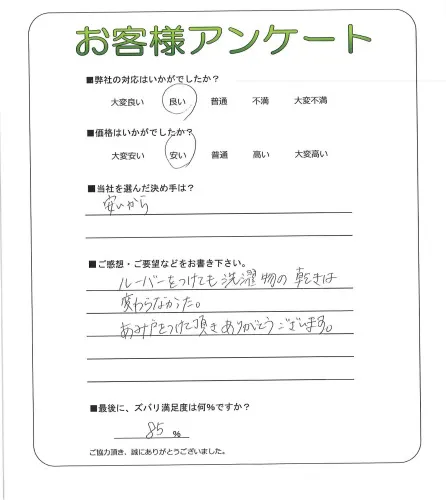 お客様アンケート
■弊社の対応はいかがでしたか？
大変良い 良い 普通 不満 大変不満
■価格はいかがでしたか？
大変安い 安い 普通 高い 大変高い
■当社を選んだ決め手は？
安いから
■ご感想・ご要望などをお書き下さい。
ルーバーをつけても洗濯物の乾きは
変わらなかった。
あみ戸をつけて頂きありがとうございます。
■最後に、ズバリ満足度は何％ですか？
85 ％
ご協力頂き、誠にありがとうございました。